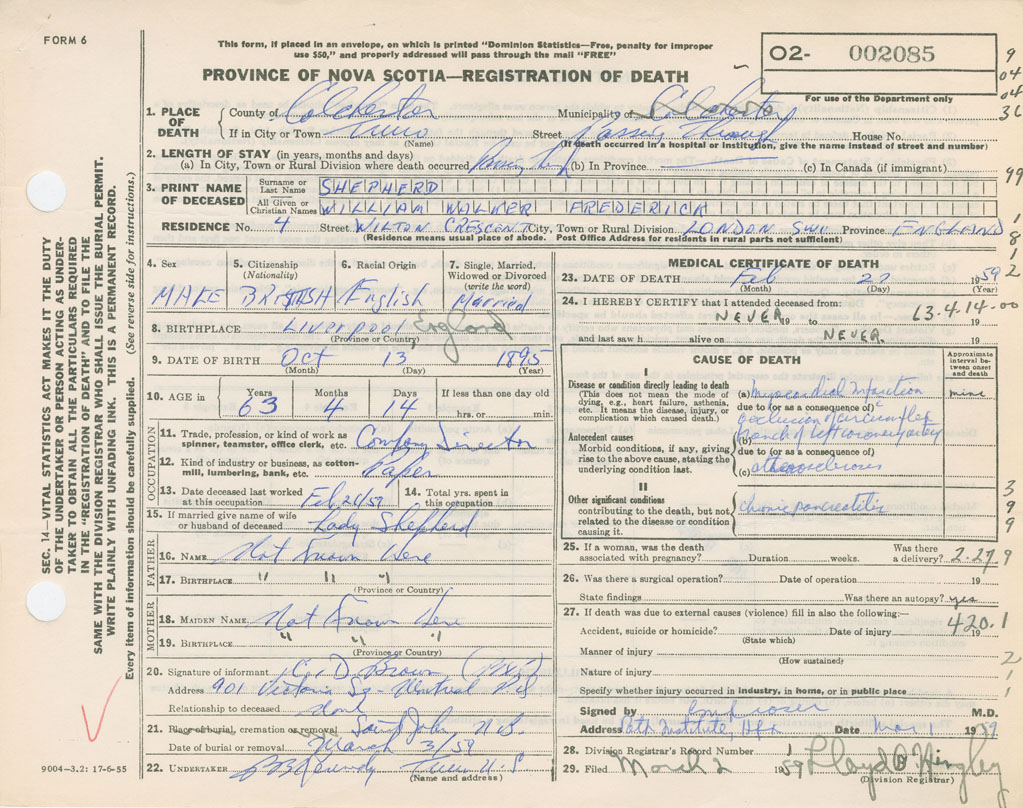 FORM 6
This form, if placed in an envelope, on which is printed "Dominion Statistics—Free, penalty for improper
use $50," and properly addressed will pass through the mail "FREE"
PROVINCE OF NOVA SCOTIA—REGISTRATION OF DEATH
02- 002085
For use of the Department only
9
04
04
36
99
1
8
1
2
SEC. 14—VITAL STATISTICS ACT MAKES IT THE DUTY
OF THE UNDERTAKER OR PERSON ACTING AS UNDER-
TAKER TO OBTAIN ALL THE PARTICULARS REQUIRED
IN THE "REGISTRATION OF DEATH" AND TO FILE THE
SAME WITH THE DIVISION REGISTRAR WHO SHALL ISSUE THE BURIAL PERMIT.
WRITE PLAINLY WITH UNFADING INK. THIS IS A PERMANENT RECORD.
Every item of information should be carefully supplied. (See reverse side for instructions.)
1. PLACE OF DEATH County of Colchester Municipality of Colchester
If in City or Town Truro Street Passing Through House No.
(Name) (If death occurred in a hospital or institution, give the name instead of street and number)
2. LENGTH OF STAY (in years, months and days)
(a) In City, Town or Rural Division where death occurred Passing (b) In Province (c) In Canada (if immigrant)
3. PRINT NAME OF DECEASED Surname or Last Name SHEPHERD
All Given or Christian Names WILLIAM WALKER FREDERICK
RESIDENCE No. 4 Street WILTON CRESCENT City, Town or Rural Division LONDON SW1 Province ENGLAND
(Residence means usual place of abode. Post Office Address for residents in rural parts not sufficient)
4. Sex MALE
5. Citizenship (Nationality) BRITISH
6. Racial Origin English
7. Single, Married, Widowed or Divorced (write the word) Married
8. BIRTHPLACE Liverpool England
(Province or Country)
9. DATE OF BIRTH Oct 13 1895
(Month) (Day) (Year)
10. AGE in Years 63 Months 4 Days 14 If less than one day old
hrs. or min.
OCCUPATION
11. Trade, profession, or kind of work as spinner, teamster, office clerk, etc. Company Director
12. Kind of industry or business, as cotton-mill, lumbering, bank, etc. Paper
13. Date deceased last worked at this occupation Feb 26/59 14. Total yrs. spent in this occupation
15. If married give name of wife or husband of deceased Lady Shepherd
FATHER
16. NAME Not Known Here
17. BIRTHPLACE " " "
(Province or Country)
MOTHER
18. MAIDEN NAME Not Known Here
19. BIRTHPLACE " " "
(Province or Country)
20. Signature of informant C. D. Brown
Address 901 Victoria Sq - Montreal
Relationship to deceased None
21. Place of burial, cremation or removal Saint John N.B.
Date of burial or removal March 3/59
22. UNDERTAKER Truro N.S
(Name and address)
9004-3.2: 17-6-55
MEDICAL CERTIFICATE OF DEATH
23. DATE OF DEATH Feb 27 1959
(Month) (Day) (Year)
24. I HEREBY CERTIFY that I attended deceased from:
NEVER 19 to 63.4.14.00 19
and last saw h alive on NEVER. 19
CAUSE OF DEATH
Approximate interval between onset and death
I
Disease or condition directly leading to death
(This does not mean the mode of dying, e.g., heart failure, asthenia, etc. It means the disease, injury, or complication which caused death.)
(a) myocardial infarction mins
due to (or as a consequence of)
occlusion of circumflex
(b) branch of left coronary artery
Antecedent causes
Morbid conditions, if any, giving rise to the above cause, stating the underlying condition last.
due to (or as a consequence of)
(c) atherosclerosis
II
Other significant conditions
contributing to the death, but not related to the disease or condition causing it.
chronic pancreatitis
3
9
9
25. If a woman, was the death associated with pregnancy? Duration weeks. Was there a delivery? 2-27 9
26. Was there a surgical operation? Date of operation 19
State findings Was there an autopsy? yes
27. If death was due to external causes (violence) fill in also the following:—
Accident, suicide or homicide? Date of injury 19 420.1
(State which)
Manner of injury 2
(How sustained)
Nature of injury 1
Specify whether injury occurred in industry, in home, or in public place 1
Signed by M.D.
Address Path Institute, Hfx Date Mar 1 1959
28. Division Registrar's Record Number 1
29. Filed March 2 1959 Lloyd B Hingley
(Division Registrar)